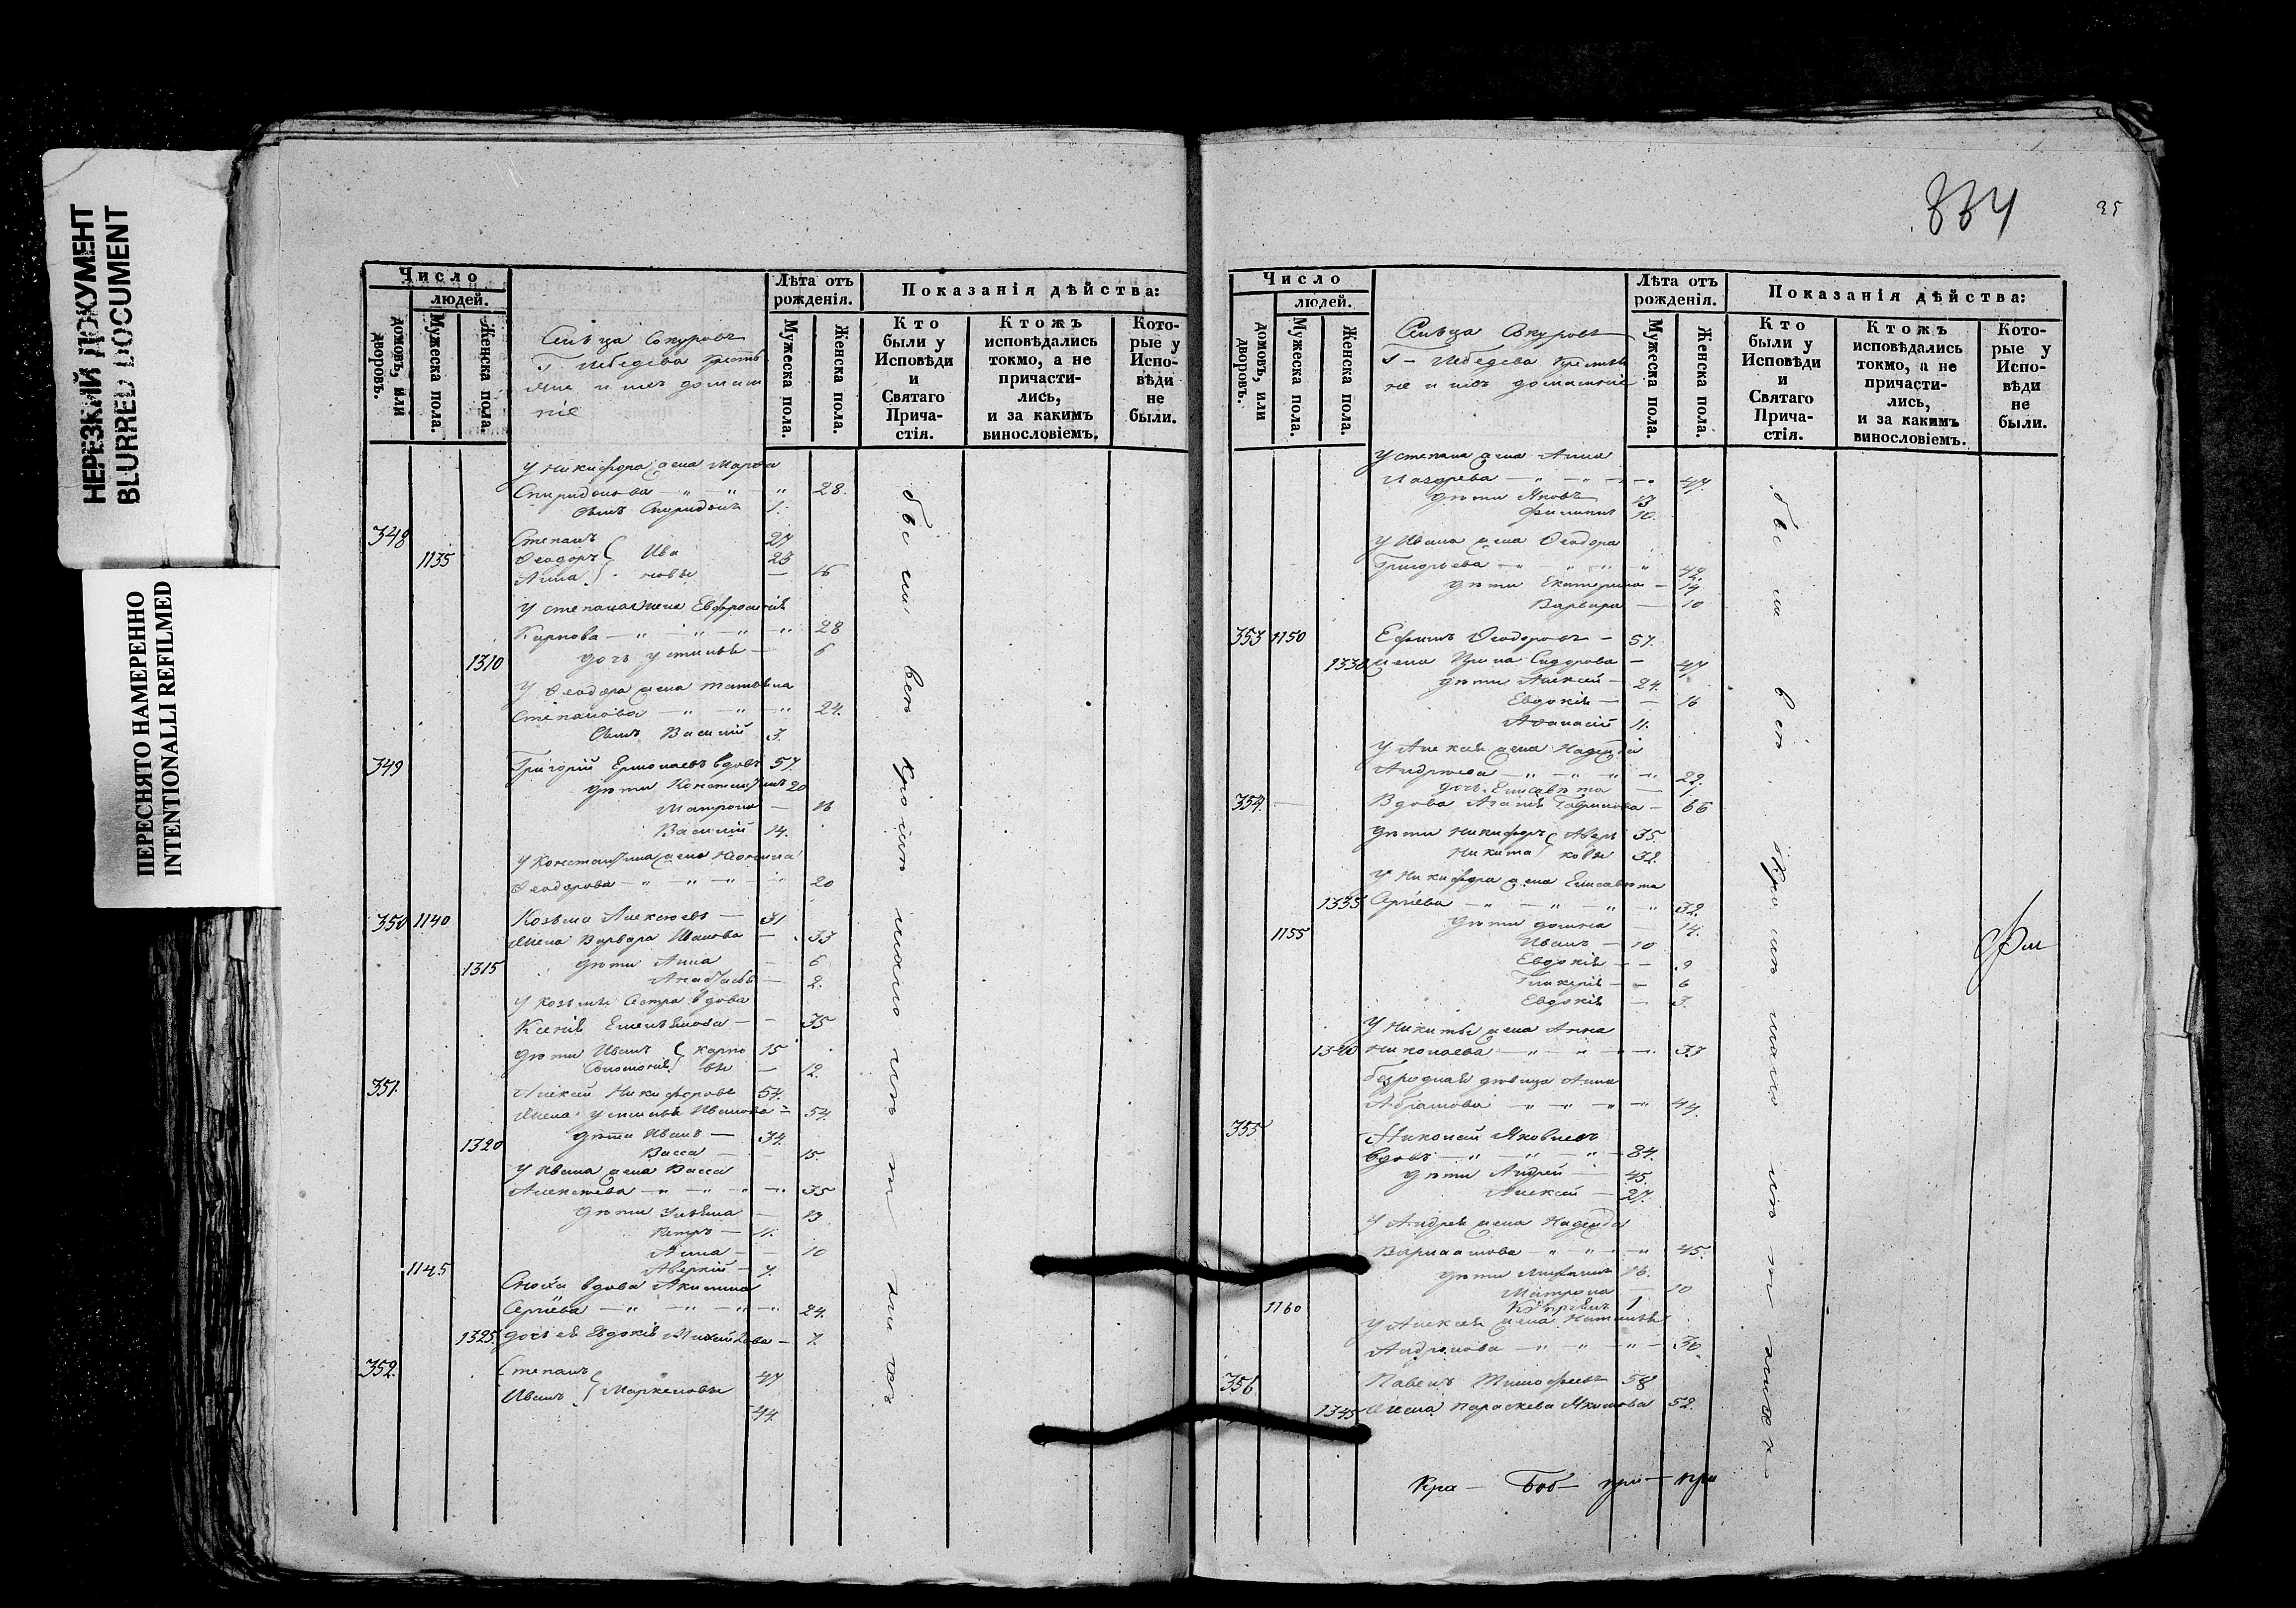 НЕРЕЗКИЙ ДОКУМЕНТ
BLURRED DOCUMENT
ПЕРЕСНЯТО НАМЕРЕННО
INTENTIONALLI REFILMED
Число
людей.
домовъ, или дворовъ.
Мужеска пола.
Женска пола.
Сельца Сокуровъ
Г. Лебедева кресть
яне и ихъ домаш
ніе
Лѣта отъ рожденія.
Мужеска пола.
Женска пола.
Показанія дѣйства:
Кто были у Исповѣди и Святаго Прича-стія.
Ктожъ исповѣдались токмо, а не причасти-лись, и за какимъ винословіемъ.
Кото-рые у Испо-вѣди не были.
У Никифора жена Марѳа
Спиридонова — " — " — " 28.
Сынъ Спиридонъ 1.
348 Степанъ 27
1135 Ѳеодоръ Ива 23
Анна новы — 16
У Степана жена Евфросинія
Карпова — " — " — " 28
1310 дочь Устинья — 6
У Ѳеодора жена Татьяна
Степанова — " — " — " 24.
Сынъ Василій 3.
349 Григорій Ермолаевъ вдовъ 57.
дѣти Константинъ 20
Матрона — 16
Василій 14.
У Константина жена
Ѳеодорова — " — " — " 20
350 1140 Козьма Алексѣевъ — 31
Жена Варвара Иванова — 33
1315 дѣти Анна — 6
— 2.
У Козьмы Сестра вдова
Ксенія Емельянова — — 35
дѣти Иванъ Карпо 15
Соломонія вы — 12.
351. Алексѣй Никифоровъ 54.
Жена Устинья Иванова — 54.
дѣти Иванъ — 34.
1320 Васса — — 15.
У Ивана жена Васса
Алексѣева — " — " — " 35
дѣти Ульяна — 13
Петръ — 11.
Анна — — 10
1145 Аверкій — 7.
Сноха вдова Акилина
Сергіева — " — " — " — " 24.
1325 дочь ея Евдокія Михайлова — 7.
352. Степанъ 47
Иванъ Маркеловы
44.
были всѣ кромѣ мало лѣтнихъ
834
35
Число
людей.
домовъ, или дворовъ.
Мужеска пола.
Женска пола.
Сельца Сокуровъ
Г — Лебедева крестья
не и ихъ домашніе
Лѣта отъ рожденія.
Мужеска пола.
Женска пола.
Показанія дѣйства:
Кто были у Исповѣди и Святаго Прича-стія.
Ктожъ исповѣдались токмо, а не причасти-лись, и за какимъ винословіемъ.
Кото-рые у Испо-вѣди не были.
У Степана жена Анна
Лазарева — " — " — " 47.
дѣти Яковъ 13
Филипъ 10.
У Ивана жена Ѳеодора
Григорьева — " " " " 42.
дѣти Екатерина — 14
Варвара — 10
353 1150 Ефимъ Ѳеодоровъ — 57.
1330 жена Ирина Сидорова — 47
дѣти Алексѣй — 24.
Евдокія — — 16
Аѳанасій 11.
У Алексѣя жена Надежда
Андреева — " — " — " 22.
дочь Елисавета — 1.
354. Вдова Агапія Гаврилова — 66
дѣти Никифоръ Аверь 35.
Никита ковы 32.
У Никифора жена Елисавета
1335 Сергіева — " — " — " 32.
дѣти Домна 14.
1155 Иванъ — 10
Евдокія — — 9
Гликерія — — 6
Евдокія — 3.
У Никиты жена Анна
1340 Николаева — " — " — 33
безродная дѣвица Анна
Абрамова — " — " — " 44.
355 Николай Яковлевъ
вдовъ — " — " — " — 84.
дѣти Андрей — 45.
Алексѣй — 27.
У Андрея жена Надежда
Варлаамова — " — " — " 45.
дѣти 16.
Матрона — 10
1160 Кипріянъ 1
У Алексѣя жена Наталья
Андронова — " — " — " 30.
356 Павелъ Тимофеевъ 58
1345 Жена Параскева Якимова 52.
были всѣ кромѣ мало лѣтнихъ
Кра — Боб — при — при